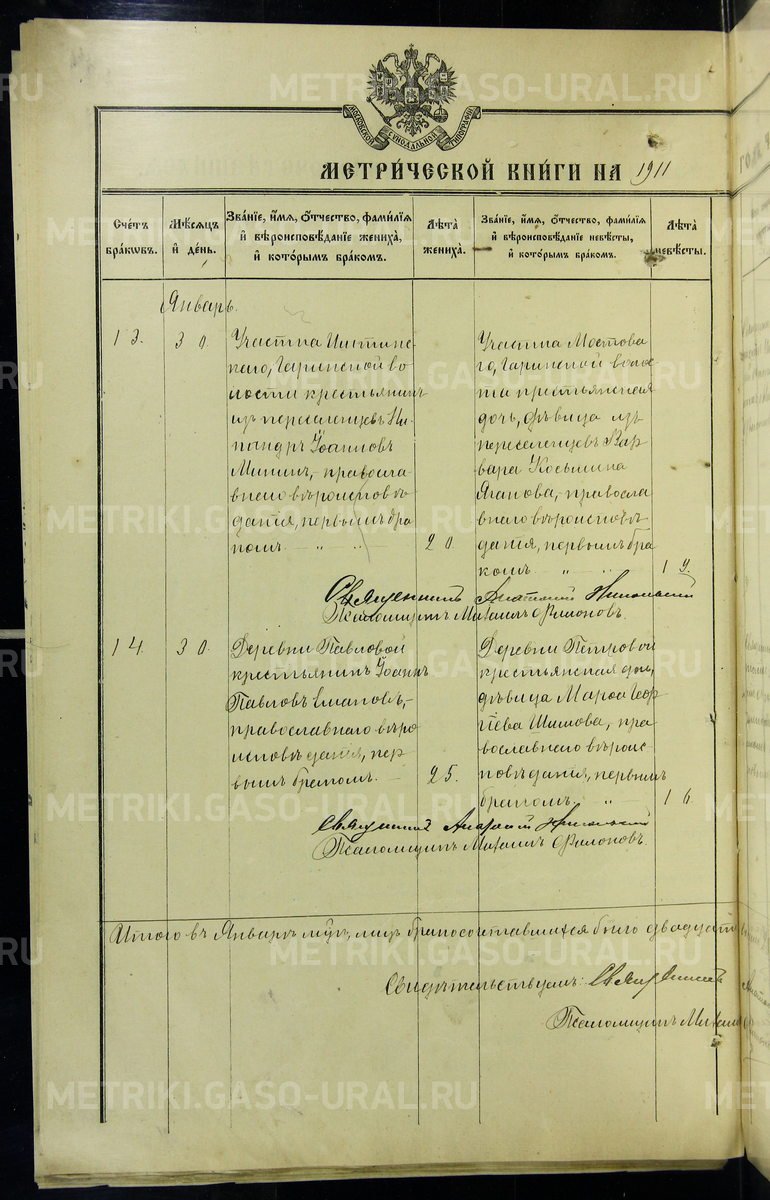 МОСКОВСКОЙ СѴНОДАЛЬНОЙ ТИПОГРАФІИ
МЕТРИ́ЧЕСКОЙ КНИ́ГИ НА 1911
Сче́тъ бра́кѡвъ.
Мѣ́сяцъ и҆ де́нь.
Зва́ніе, и҆́мѧ, ѻ҆́тчество, фами́лїѧ и҆ вѣроисповѣ́даніе жениха̀, и҆ кото́рымъ бра́комъ.
Лѣ́та жениха̀.
Зва́ніе, и҆́мѧ, ѻ҆́тчество, фами́лїѧ и҆ вѣроисповѣ́даніе невѣ́сты, и҆ кото́рымъ бра́комъ.
Лѣ́та невѣ́сты.
Январь.
13.
30.
Участка
Гаринской во
лости крестьянинъ
изъ переселенцевъ Ни
кандръ Іоанновъ
Мининъ, – правосла
внаго вѣроисповѣ
данія, первымъ бра
комъ. „ „
20.
Участка Мостова
го, Гаринской волос
ти крестьянская
дочь, дѣвица изъ
переселенцевъ Вар
вара Косьмина
Аганова, правосла
внаго вѣроисповѣ
данія, первымъ бра
комъ. „ „
19.
Священникъ Анатолій Никольскій
Псаломщикъ Михаилъ Филоновъ.
14.
30.
Деревни Павловой
крестьянинъ Іоаннъ
Павловъ
православнаго вѣро
исповѣданія, пер
вымъ бракомъ. —
25.
Деревни Петровой
крестьянская дочь,
дѣвица Марѳа Геор
гіева Шишова, пра
вославнаго вѣроис
повѣданія, первымъ
бракомъ. „
16.
Священникъ Анатолій Никольскій
Псаломщикъ Михаилъ Филоновъ.
Итого въ Январѣ м-цѣ, лицъ бракосочетавшихся было двадцать
Свидѣтельствуемъ: Священникъ
Псаломщикъ Михаилъ
METRIKI.GASO-URAL.RU